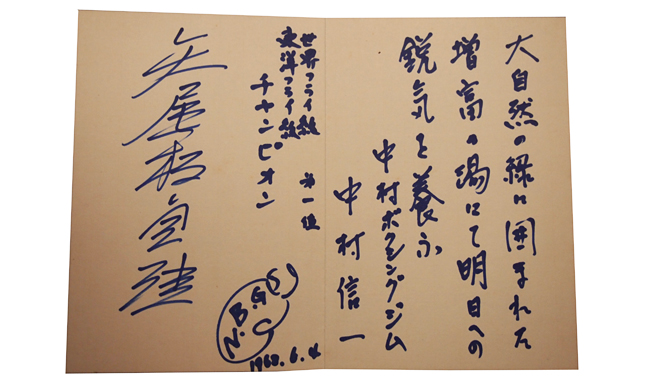 大自然の緑に囲まれた
増富の湯にて明日への
鋭気を養ふ
中村ボクシングジム
中村信一
世界フライ級 第一位
東洋フライ級
チャンピオン
矢尾板貞雄
N.B.G
1960.6.4